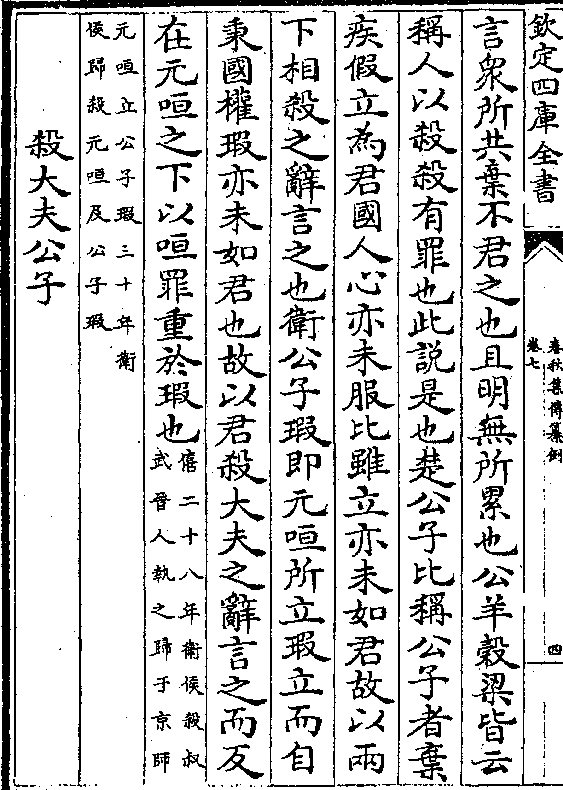 欽定四庫全書
春秋集傳纂例
卷七
四
言衆所共棄不君之也且明無所累也公羊穀梁皆云
稱人以殺殺有罪也此說是也楚公子比稱公子者棄
疾假立為君國人心亦未服比雖立亦未如君故以兩
下相殺之辭言之也衛公子瑕即元咺所立瑕立而自
秉國權瑕亦未如君也故以君殺大夫之辭言之而反
在元咺之下以咺罪重於瑕也
僖二十八年衛侯殺叔
武晉人執之歸于京師
元咺立公子瑕三十年衛
侯歸殺元咺及公子瑕
殺大夫公子